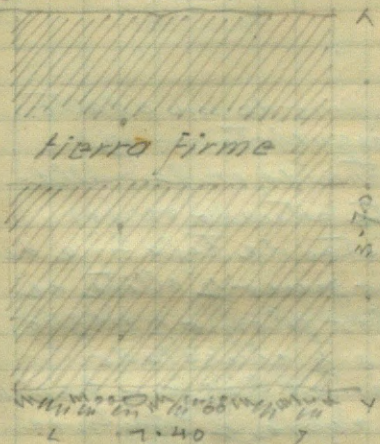 tierra firme
3.70
1.40